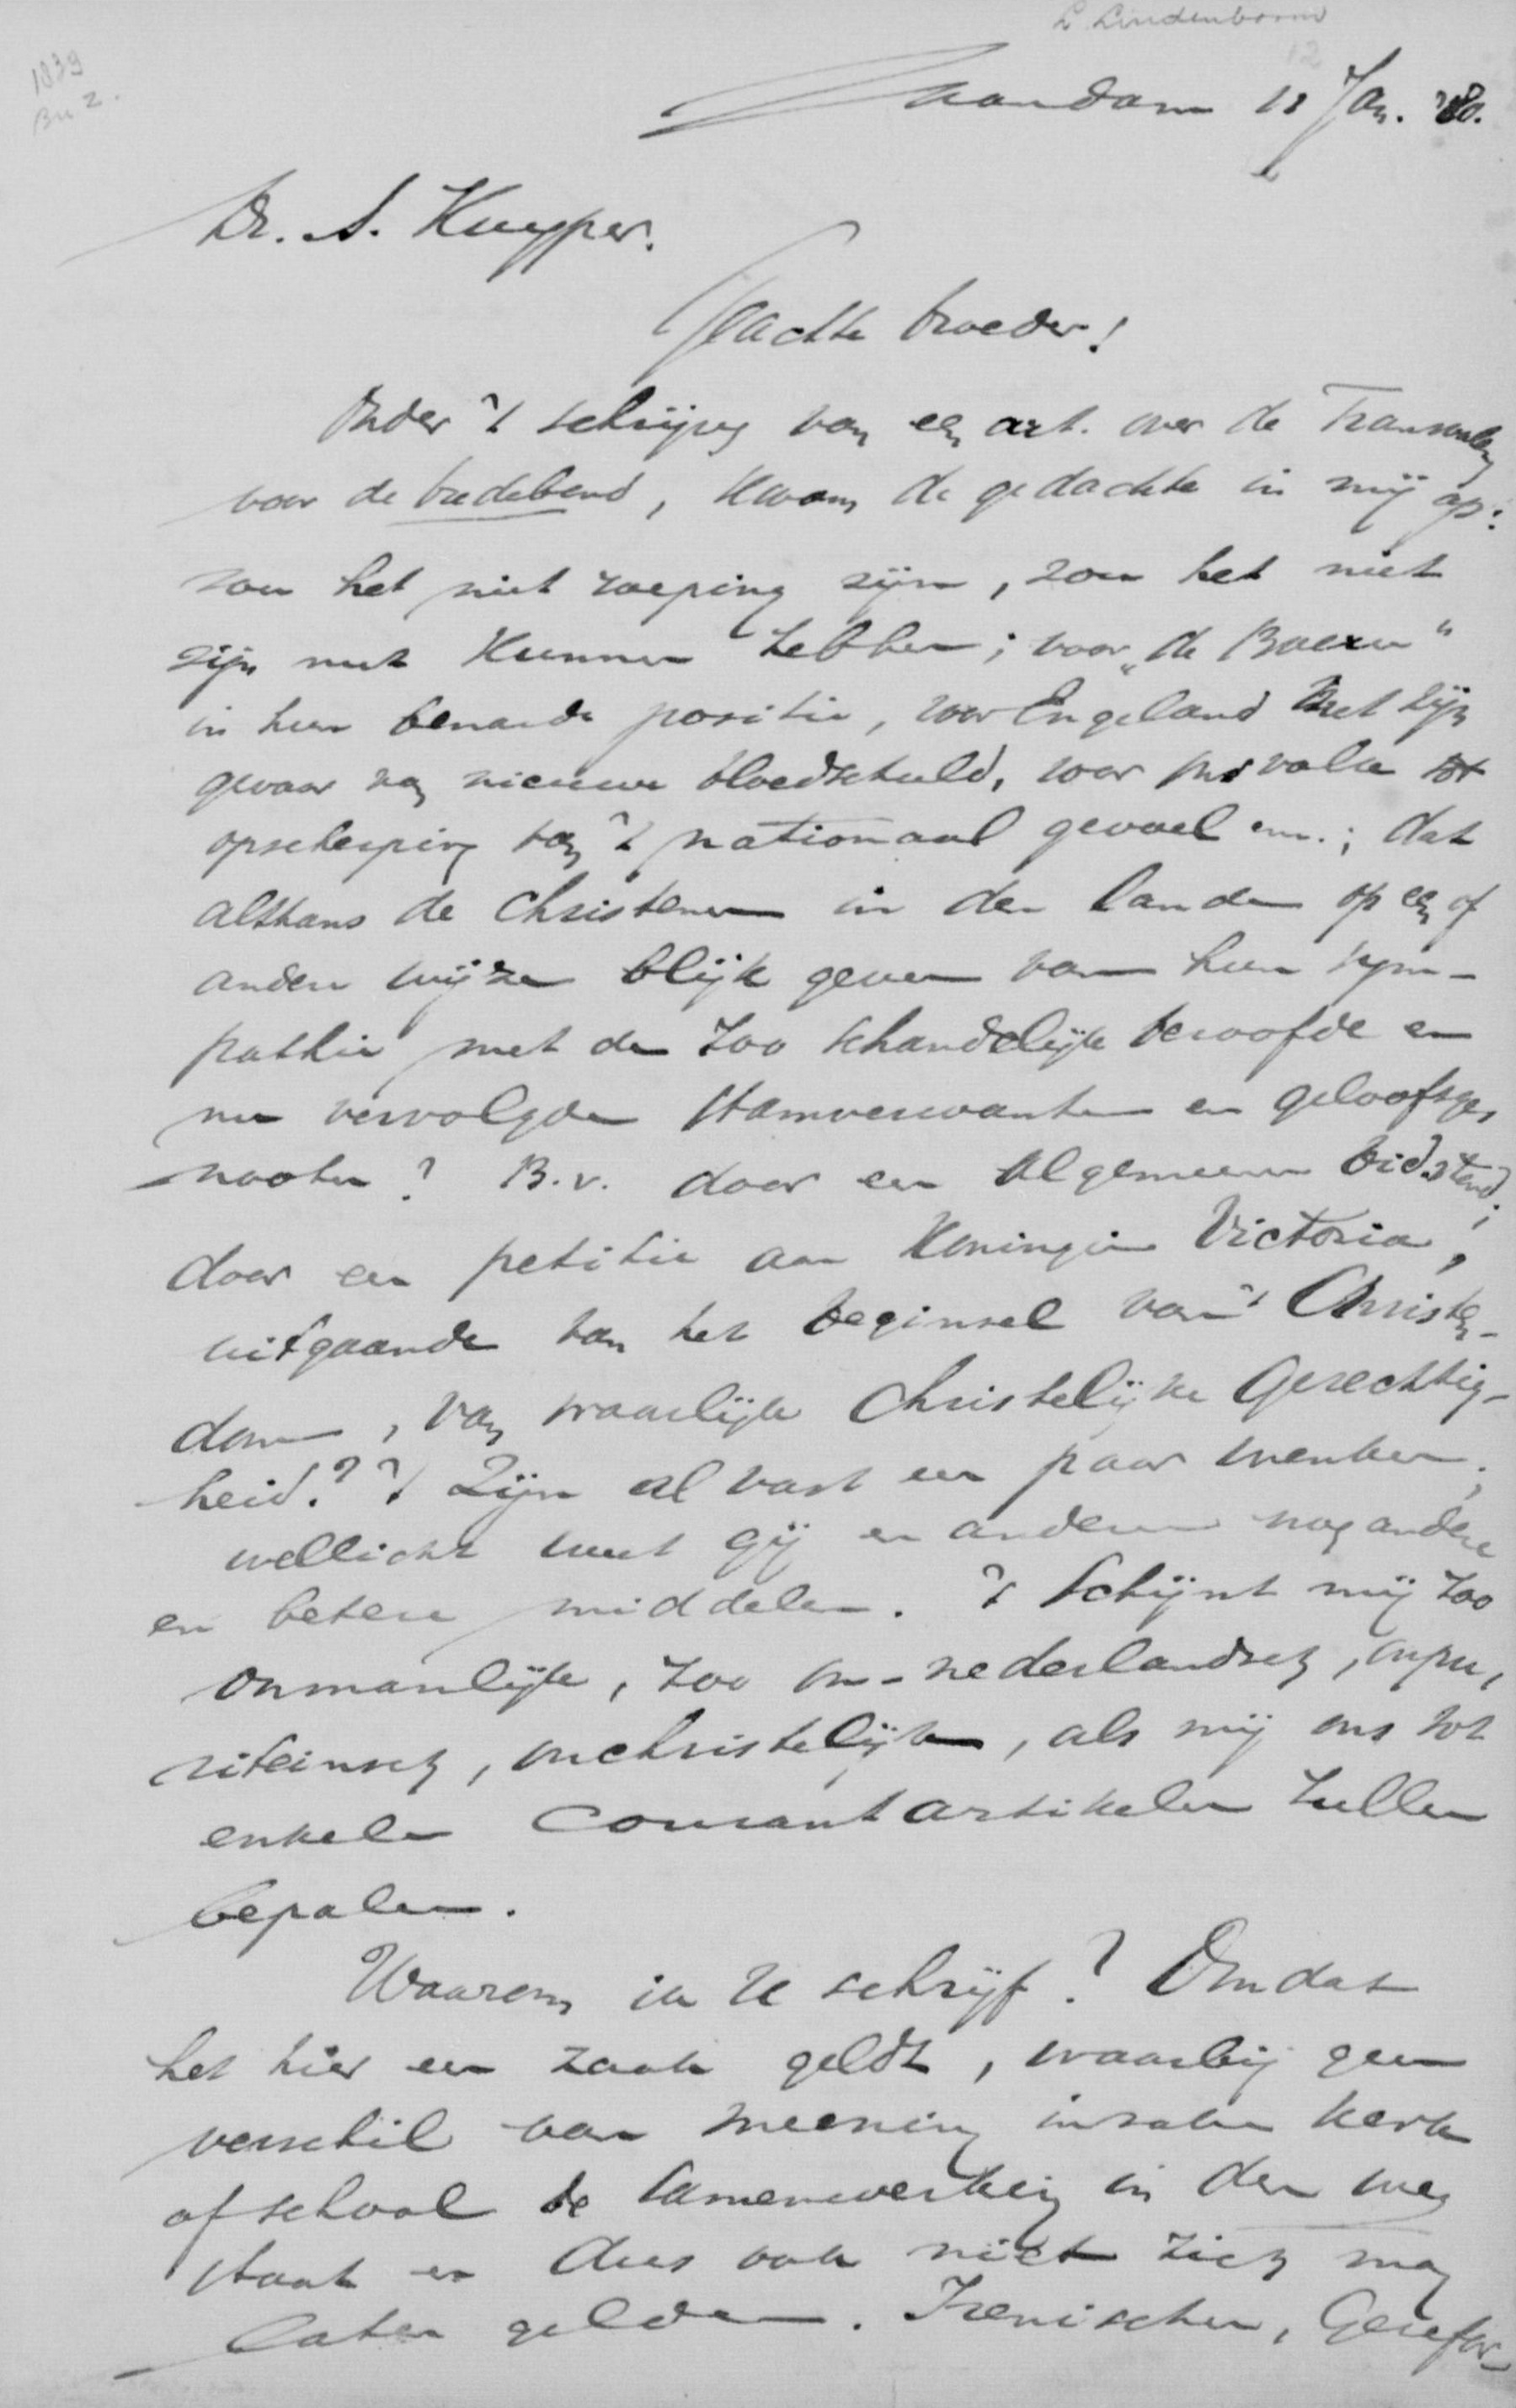 L Lindenboom
12
1839
Bu 2.
Zaandam 18 Jan. '80.
Dr. A. Kuyper.
Geachte broeder!
Onder 't schrijven van een art. over de Transvalers
voor de bazuin, kwam de gedachte in mij op:
zou het niet roeping zijn, zou het niet
zijn nut kunnen hebben; voor „de Boeren"
in hun benarde positie, voor Engeland met zijn
gevaar van nieuwe bloedschuld, voor ons volk tot
opscherping van 't nationaal gevoel enz.; dat
althans de Christenen in den lande op een of
andere wijze blijk geven van hun sym-
pathie met de zoo schandelijk beroofde en
nu vervolgde stamverwanten en geloofsge-
nooten? B.v. door een algemeene bidstond;
door een petitie aan Koningin Victoria,
uitgaande van het beginsel van 't Christen-
dom, van waarlijk Christelijke Gerechtig-
heid? 't Zijn al vast een paar wenken;
wellicht weet gij en anderen nog andere
en betere middelen. 't Schijnt mij zoo
onmanlijk, zoo on-nederlandsch, onpu-
riteinsch, onchristelijk, als wij ons tot
enkele courantartikelen zullen
bepalen.
Waarom ik U schrijf? Omdat
het hier een zaak geldt, waarbij geen
verschil van meening inzake kerk
of school de samenwerking in den weg
staat en dus ook niet zich mag
laten gelden. Irenischen, Gerefor-